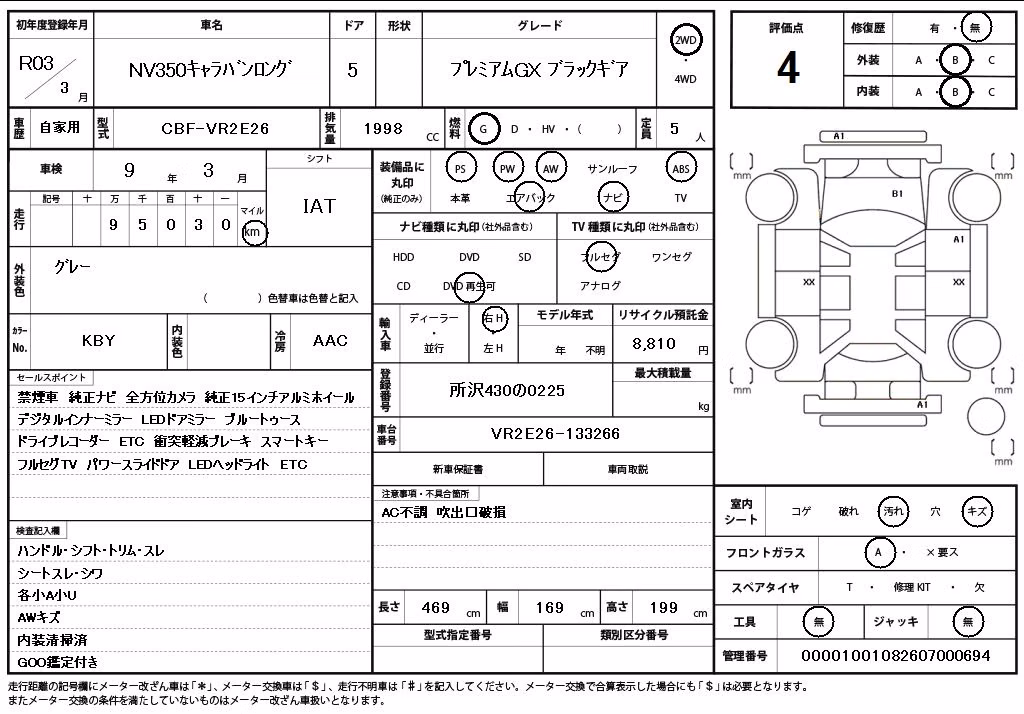 初年度登録年月 車名 ドア 形状 グレード
R03/3月 NV350キャラバンロング 5 プレミアムGX ブラックギア 2WD・4WD
車歴 自家用 型式 CBF-VR2E26 排気量 1998 CC 燃料 G D ・ HV ・ ( ) 定員 5 人
車検 9 年 3 月 シフト IAT
走行 記号 十 万 千 百 十 一 マイル km
9 5 0 3 0
外装色 グレー
( ) 色替車は色替と記入
カラーNo. KBY 内装色 冷房 AAC
セールスポイント
禁煙車 純正ナビ 全方位カメラ 純正15インチアルミホイール
デジタルインナーミラー LEDドアミラー ブルートゥース
ドライブレコーダー ETC 衝突軽減ブレーキ スマートキー
フルセグTV パワースライドドア LEDヘッドライト ETC
検査記入欄
ハンドル・シフト・トリム・スレ
シートスレ・シワ
各小A小U
AWキズ
内装清掃済
GOO鑑定付き
装備品に丸印 (純正のみ) PS PW AW サンルーフ ABS
本革 エアバック ナビ TV
ナビ種類に丸印(社外品含む) TV種類に丸印(社外品含む)
HDD DVD SD フルセグ ワンセグ
CD DVD再生可 アナログ
輸入車 ディーラー・並行 右H 左H モデル年式 年 不明 リサイクル預託金 8,810 円
登録番号 所沢430の0225 最大積載量 kg
車台番号 VR2E26-133266
新車保証書 車両取説
注意事項・不具合箇所
AC不調 吹出口破損
長さ 469 cm 幅 169 cm 高さ 199 cm
型式指定番号 類別区分番号
評価点 4 修復歴 有 ・ 無
外装 A ・ B ・ C
内装 A ・ B ・ C
A1
mm mm
B1
A1
XX XX
mm mm
A1
mm
室内シート コゲ 破れ 汚れ 穴 キズ
フロントガラス A ・ ×要ス
スペアタイヤ T ・ 修理KIT ・ 欠
工具 無 ジャッキ 無
管理番号 00001001082607000694
走行距離の記号欄にメーター改ざん車は「＊」、メーター交換車は「＄」、走行不明車は「＃」を記入してください。メーター交換で合算表示した場合にも「＄」は必要となります。
またメーター交換の条件を満たしていないものはメーター改ざん車扱いとなります。